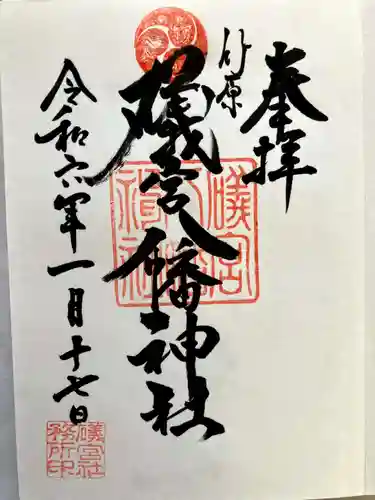 奉拝
竹原
礒宮八幡神社
令和六年一月十七日
礒宮八幡神社
礒宮社務所印